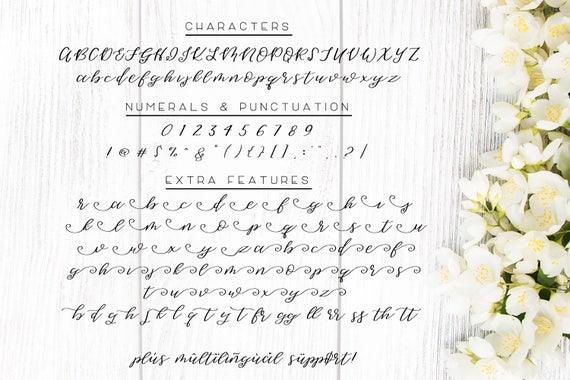 CHARACTERS
ABCDEFGHIJKLMNOPQRSTUVWXYZ
abcdefghijklmnopqrstuvwxyz
NUMERALS & PUNCTUATION
0123456789
EXTRA FEATURES
r a b c d e f g h i j
k l m n o p q r s t u
v w x y z a b c d e f
g h i j k l m n o p q r s
t u v w x y z
b d g h f k l t f fr gg ll rr ss th tt
plus multilingual support!